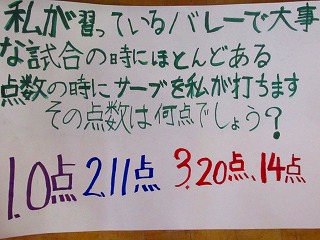 私が習っているバレーで大事
な試合の時にほとんどある
点数の時にサーブを私が打ちます
その点数は何点でしょう?
1.0点 2.11点 3.20点.14点